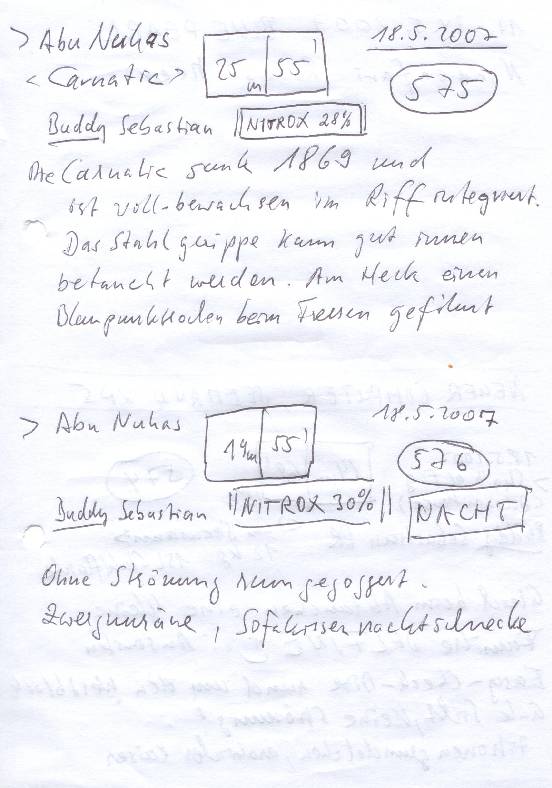 > Abu Nuhas 25m 55' 18.5.2007
<Carnatic> 575
Buddy Sebastian NITROX 28%
Die Carnatic sank 1869 und
ist voll-bewachsen im Riff integriert.
Das Stahlgerippe kann gut innen
betaucht werden. Am Heck einen
Blaupunktrochen beim Fressen gefilmt
> Abu Nuhas 14m 55' 18.5.2007
576
Buddy Sebastian NITROX 30% NACHT
Ohne Strömung rumgegoggert.
Zwergmuräne, Sofakissennachtschnecke